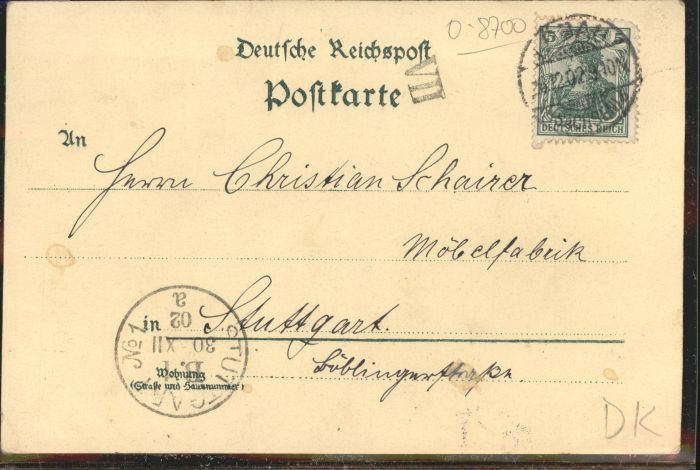 O-8700
Deutsche Reichspost
Postkarte
VII
5 5
DEUTSCHES REICH
An
Herrn Christian Schairer
Möbelfabrik
in Stuttgart.
Böblingerstraße.
Wohnung
(Straße und Hausnummer)
STUTTGART No 1
30 XII
02
a
DK